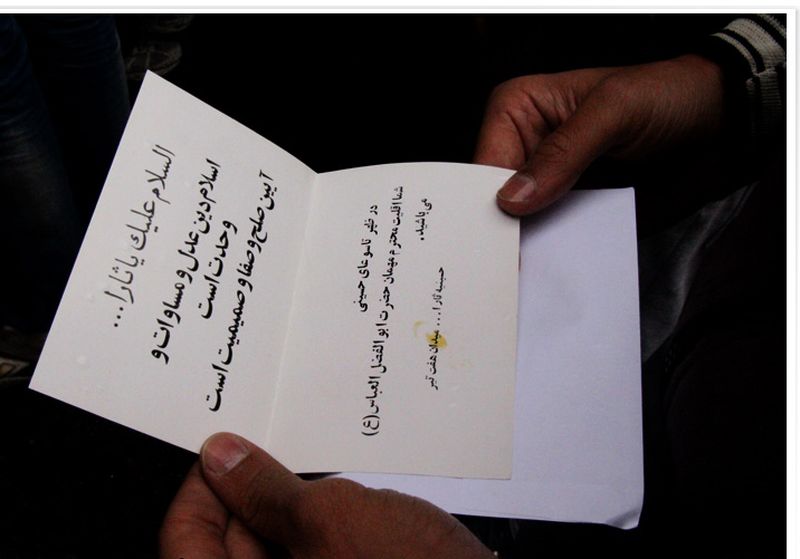 السلام علیك یا ثارا...
اسلام دین عدل و مساوات و
وحدت است
آیین صلح و صفا و صمیمیت است
در ظهر تاسوعای حسینی
شما اقلیت محترم مهمان حضرت ابوالفضل العباس (ع)
می باشید.
حسینیه ثارا... میدان هفت تیر